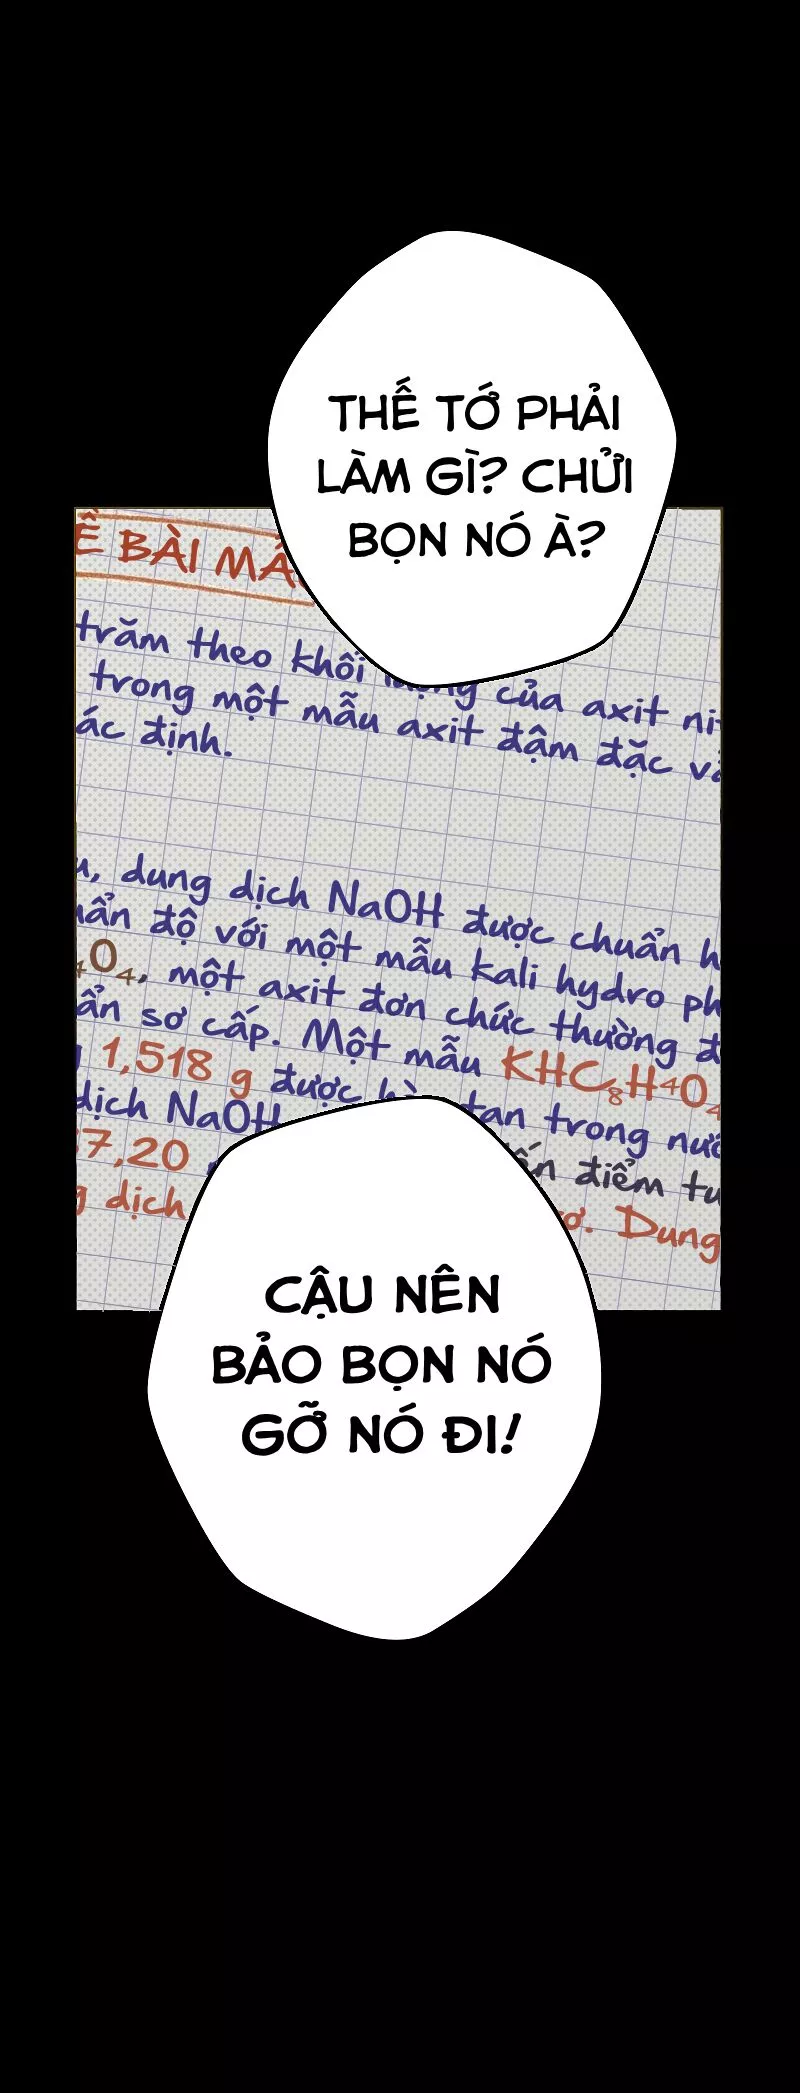 THẾ TỚ PHẢI
LÀM GÌ? CHỬI
BỌN NÓ À?
BÀI
trăm theo khối lượng của axit
trong một mẫu axit đậm đặc
định.
dung dịch NaOH được chuẩn
độ với một mẫu kali hydro
₄O₄, một axit đơn chức thường
sơ cấp. Một mẫu KHC₈H₄O₄
1,518 g được hòa tan trong
dịch NaOH
7,20 đến điểm
dịch Dung
CẬU NÊN
BẢO BỌN NÓ
GỠ NÓ ĐI!